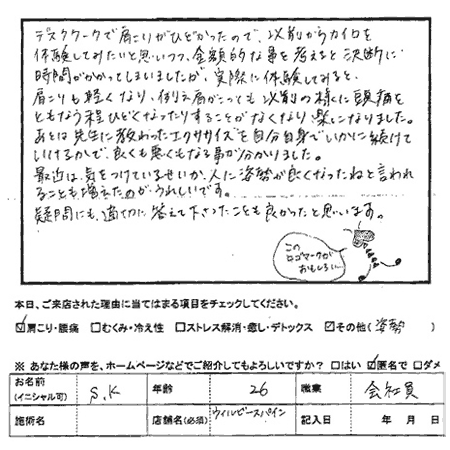 デスクワークで肩こりがひどかったので、以前からカイロを
体験してみたいと思いつつ、金額的な事を考えると決断に
時間がかかってしまいましたが、実際に体験してみると、
肩こりも軽くなり、例え肩がこっても以前の様に頭痛を
ともなう程ひどくなったりすることがなくなり、楽になりました。
あとは先生に教わったエクササイズを自分自身でいかに続けて
いけるかで、良くも悪くもなる事が分かりました。
最近は、気をつけているせいか、人に姿勢が良くなったねと言われ
ることも増えたのが、うれしいです。
疑問にも、適切に答えて下さったことも良かったと思います。
この
ロゴマークが
おもしろい
本日、ご来店された理由に当てはまる項目をチェックしてください。
☑肩こり・腰痛 □むくみ・冷え性 □ストレス解消・癒し・デトックス ☑その他(姿勢)
※ あなた様の声を、ホームページなどでご紹介してもよろしいですか? □はい ☑匿名で □ダメ
お名前(イニシャル可) S.K 年齢 26 職業 会社員
施術名 店舗名(必須) ウィルビースパイン 記入日 年 月 日